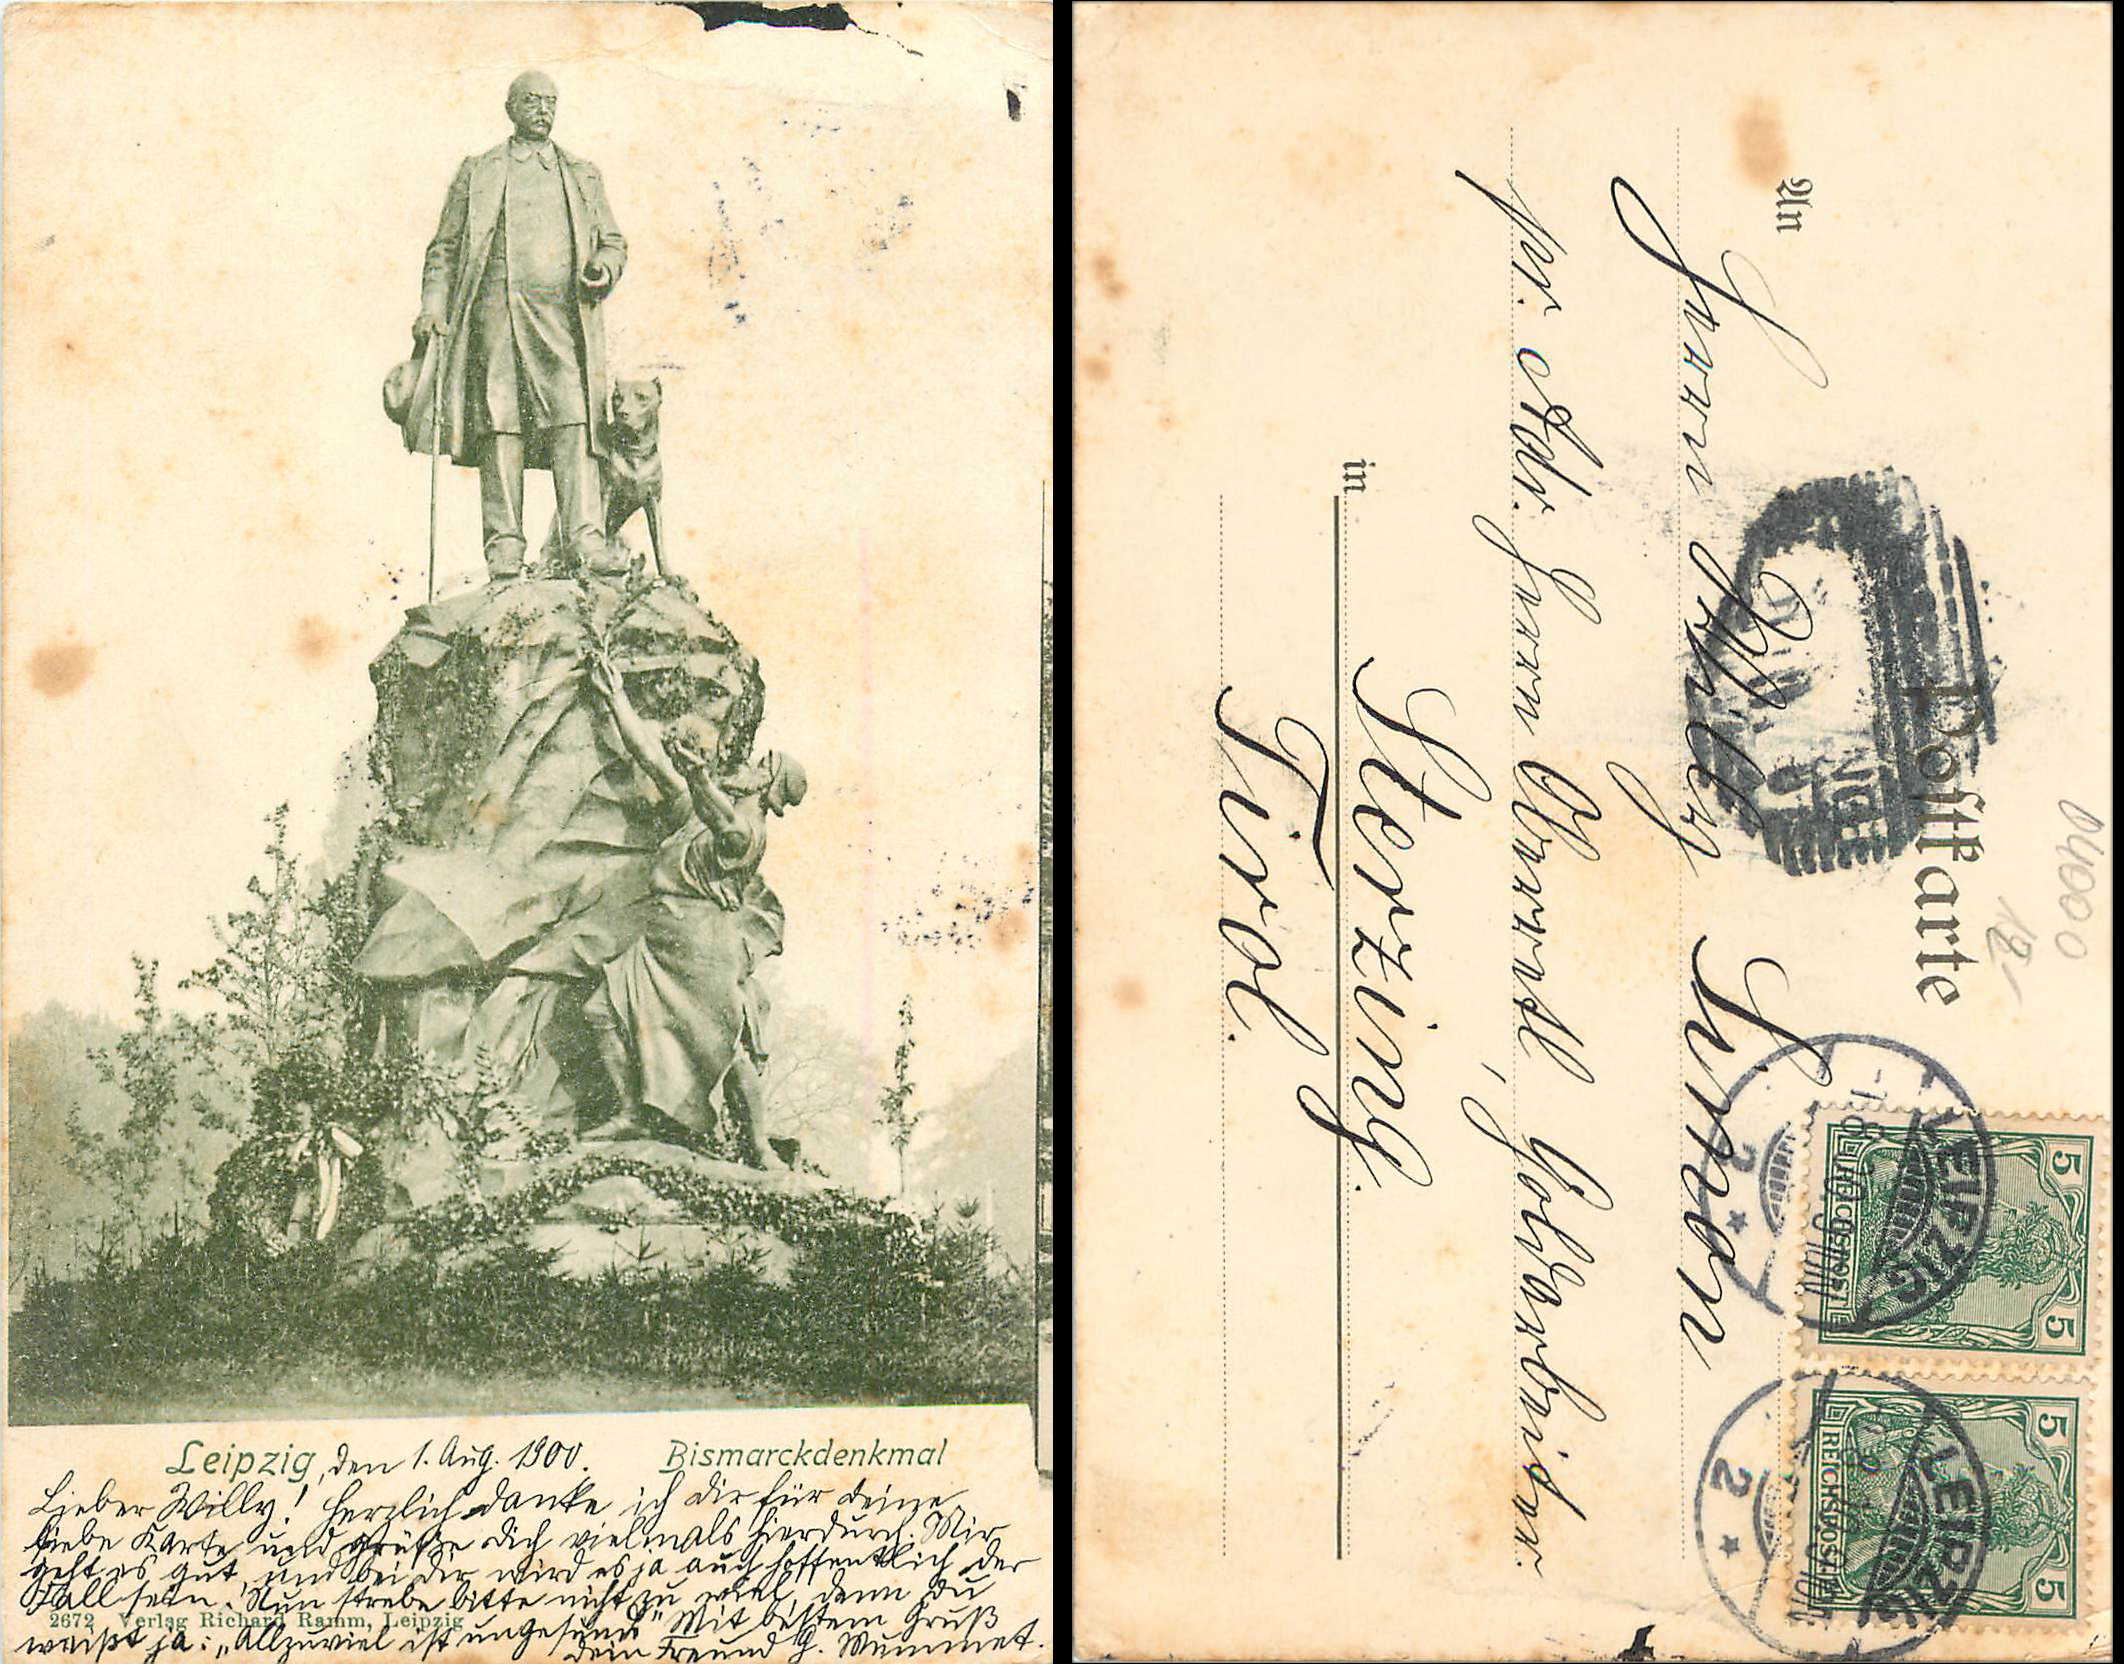 Leipzig, den 1. Aug. 1900. Bismarckdenkmal
Lieber Willy! Herzlich danke ich dir für deine
liebe Karte und grüße dich vielmals hierdurch. Mir
geht es gut, und bei dir wird es ja auch hoffentlich der
Fall sein. Nun strebe bitte nicht zu viel, denn du
2672 Verlag Richard Ramm, Leipzig
weißt ja: „Allzuviel ist ungesund“ Mit bestem Gruß
dein Freund G. Mummet.
Postkarte
04000
An
Herrn Willy Simon
pr. Adr. Herrn Obexer, Goldarbeiter.
in
Sterzing.
Tirol.
5 5
REICHSPOST
LEIPZIG
2 *
5 5
REICHSPOST
LEIPZIG
2 *